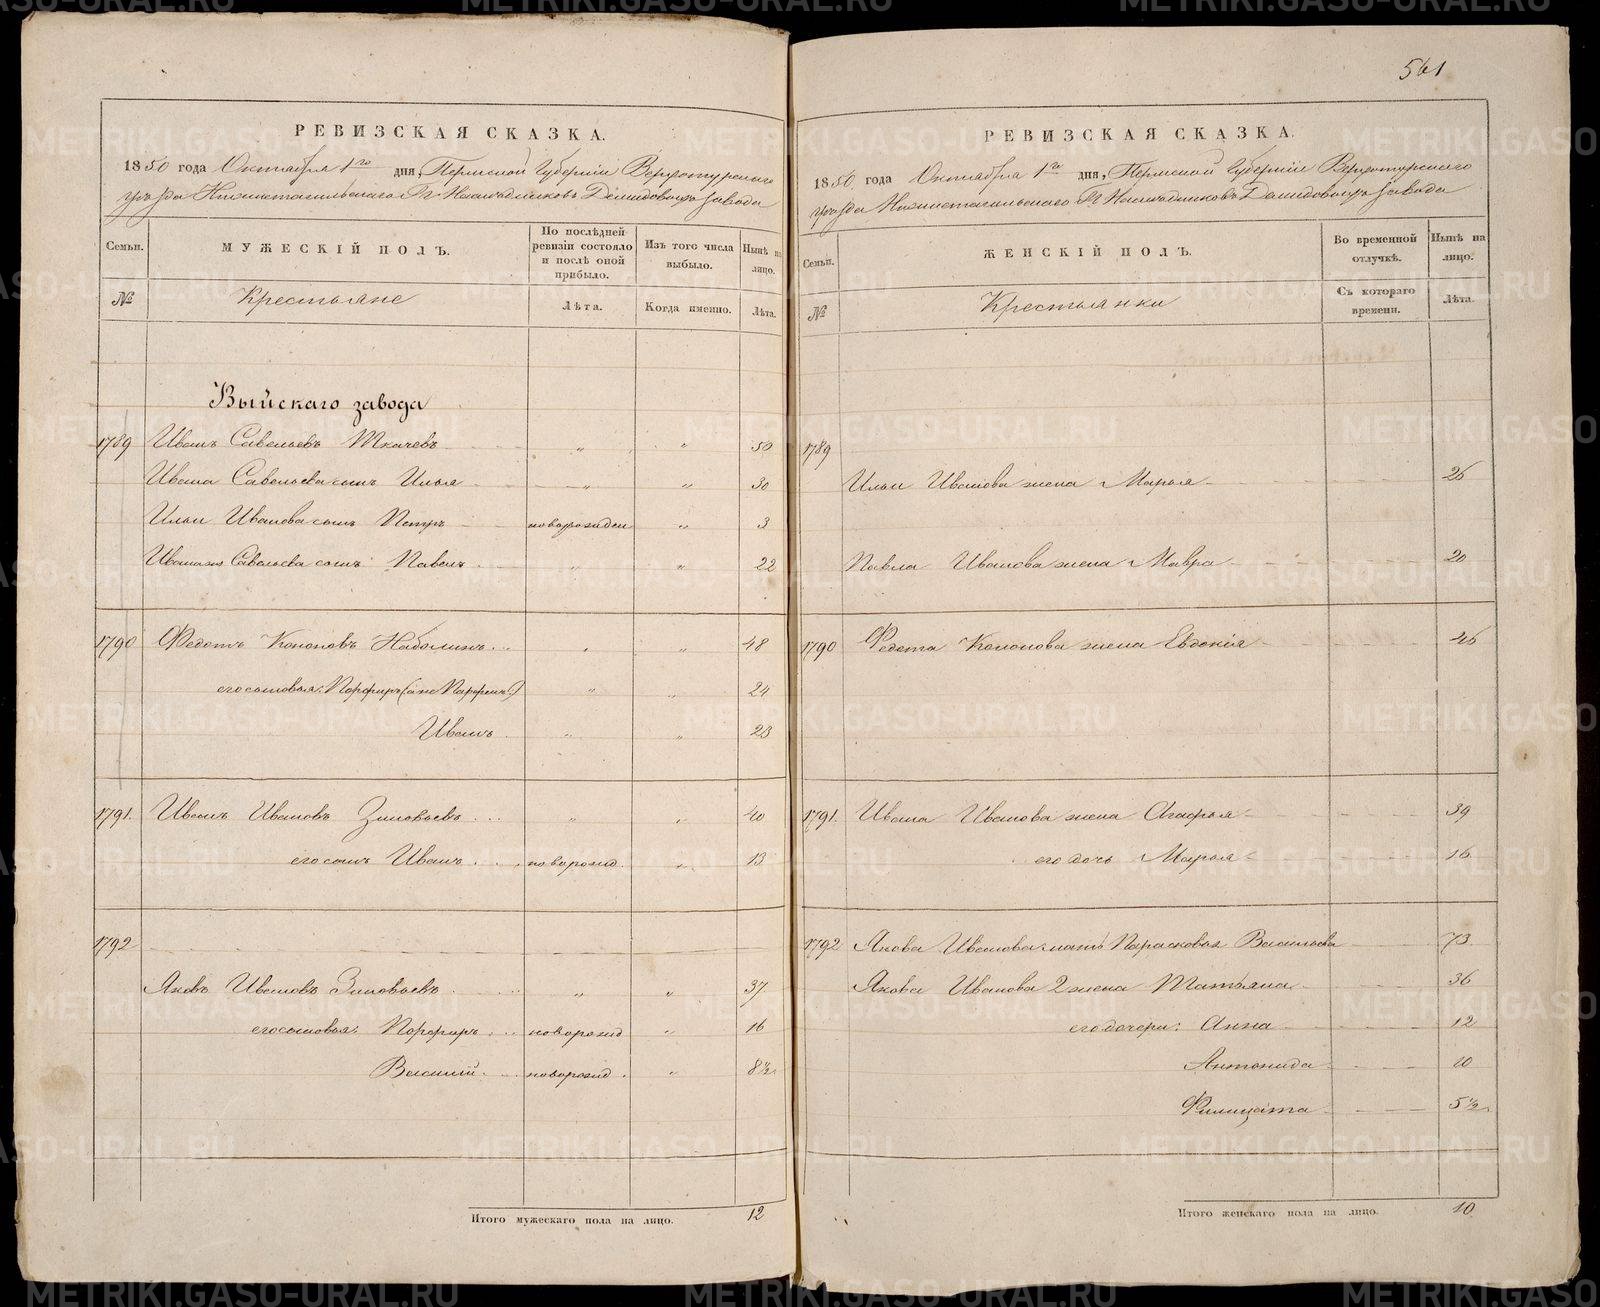 РЕВИЗСКАЯ СКАЗКА.
1850 года Октября 1го дня, Пермской Губернiи Верхотурскаго
уѣзда Нижнетагильскаго Гг. Наслѣдниковъ Демидовыхъ завода
Семьи. МУЖЕСКIЙ ПОЛЪ. По послѣдней ревизiи состояло и послѣ оной прибыло. Изъ того числа выбыло. Нынѣ на лицо.
№ Крестьяне Лѣта. Когда именно. Лѣта.
Выйскаго завода
1789 Иванъ Савельевъ Ткачевъ " " 50
Ивана Савельева сынъ Илья " " 30
Ильи Иванова сынъ Петръ новорожден " 3
Ивана Савельева сынъ Павелъ " " 22
1790 Федотъ Кононовъ Наболинъ " " 48
его сыновья: Порфиръ (а не Парфенъ) " " 24
Иванъ " " 23
1791. Иванъ Ивановъ Зиновьевъ " " 40
его сынъ Иванъ новорожд. " 13
1792
Яковъ Ивановъ Зиновьевъ " " 37
его сыновья: Порфиръ новорожд " 16
Василiй новорожд. " 8½
Итого мужескаго пола на лицо. 12
561
РЕВИЗСКАЯ СКАЗКА.
1850 года Октября 1го дня, Пермской Губернiи Верхотурскаго
уѣзда Нижнетагильскаго Гг. Наслѣдниковъ Демидовыхъ завода
Семьи. ЖЕНСКIЙ ПОЛЪ. Во временной отлучкѣ. Нынѣ на лицо.
№ Крестьянки Съ котораго времени. Лѣта.
1789
Ильи Иванова жена Марья 26
Павла Иванова жена Мавра 20
1790 Федота Кононова жена Евдокiя 46
1791. Ивана Иванова жена Агафья 39
его дочь Марья 16
1792 Якова Иванова мать Парасковья Васильева 73
Якова Иванова 2 жена Татьяна 36
его дочери: Анна 12
Антонида 10
Филицата 5½
Итого женскаго пола на лицо. 10
METRIKI.GASO-URAL.RU